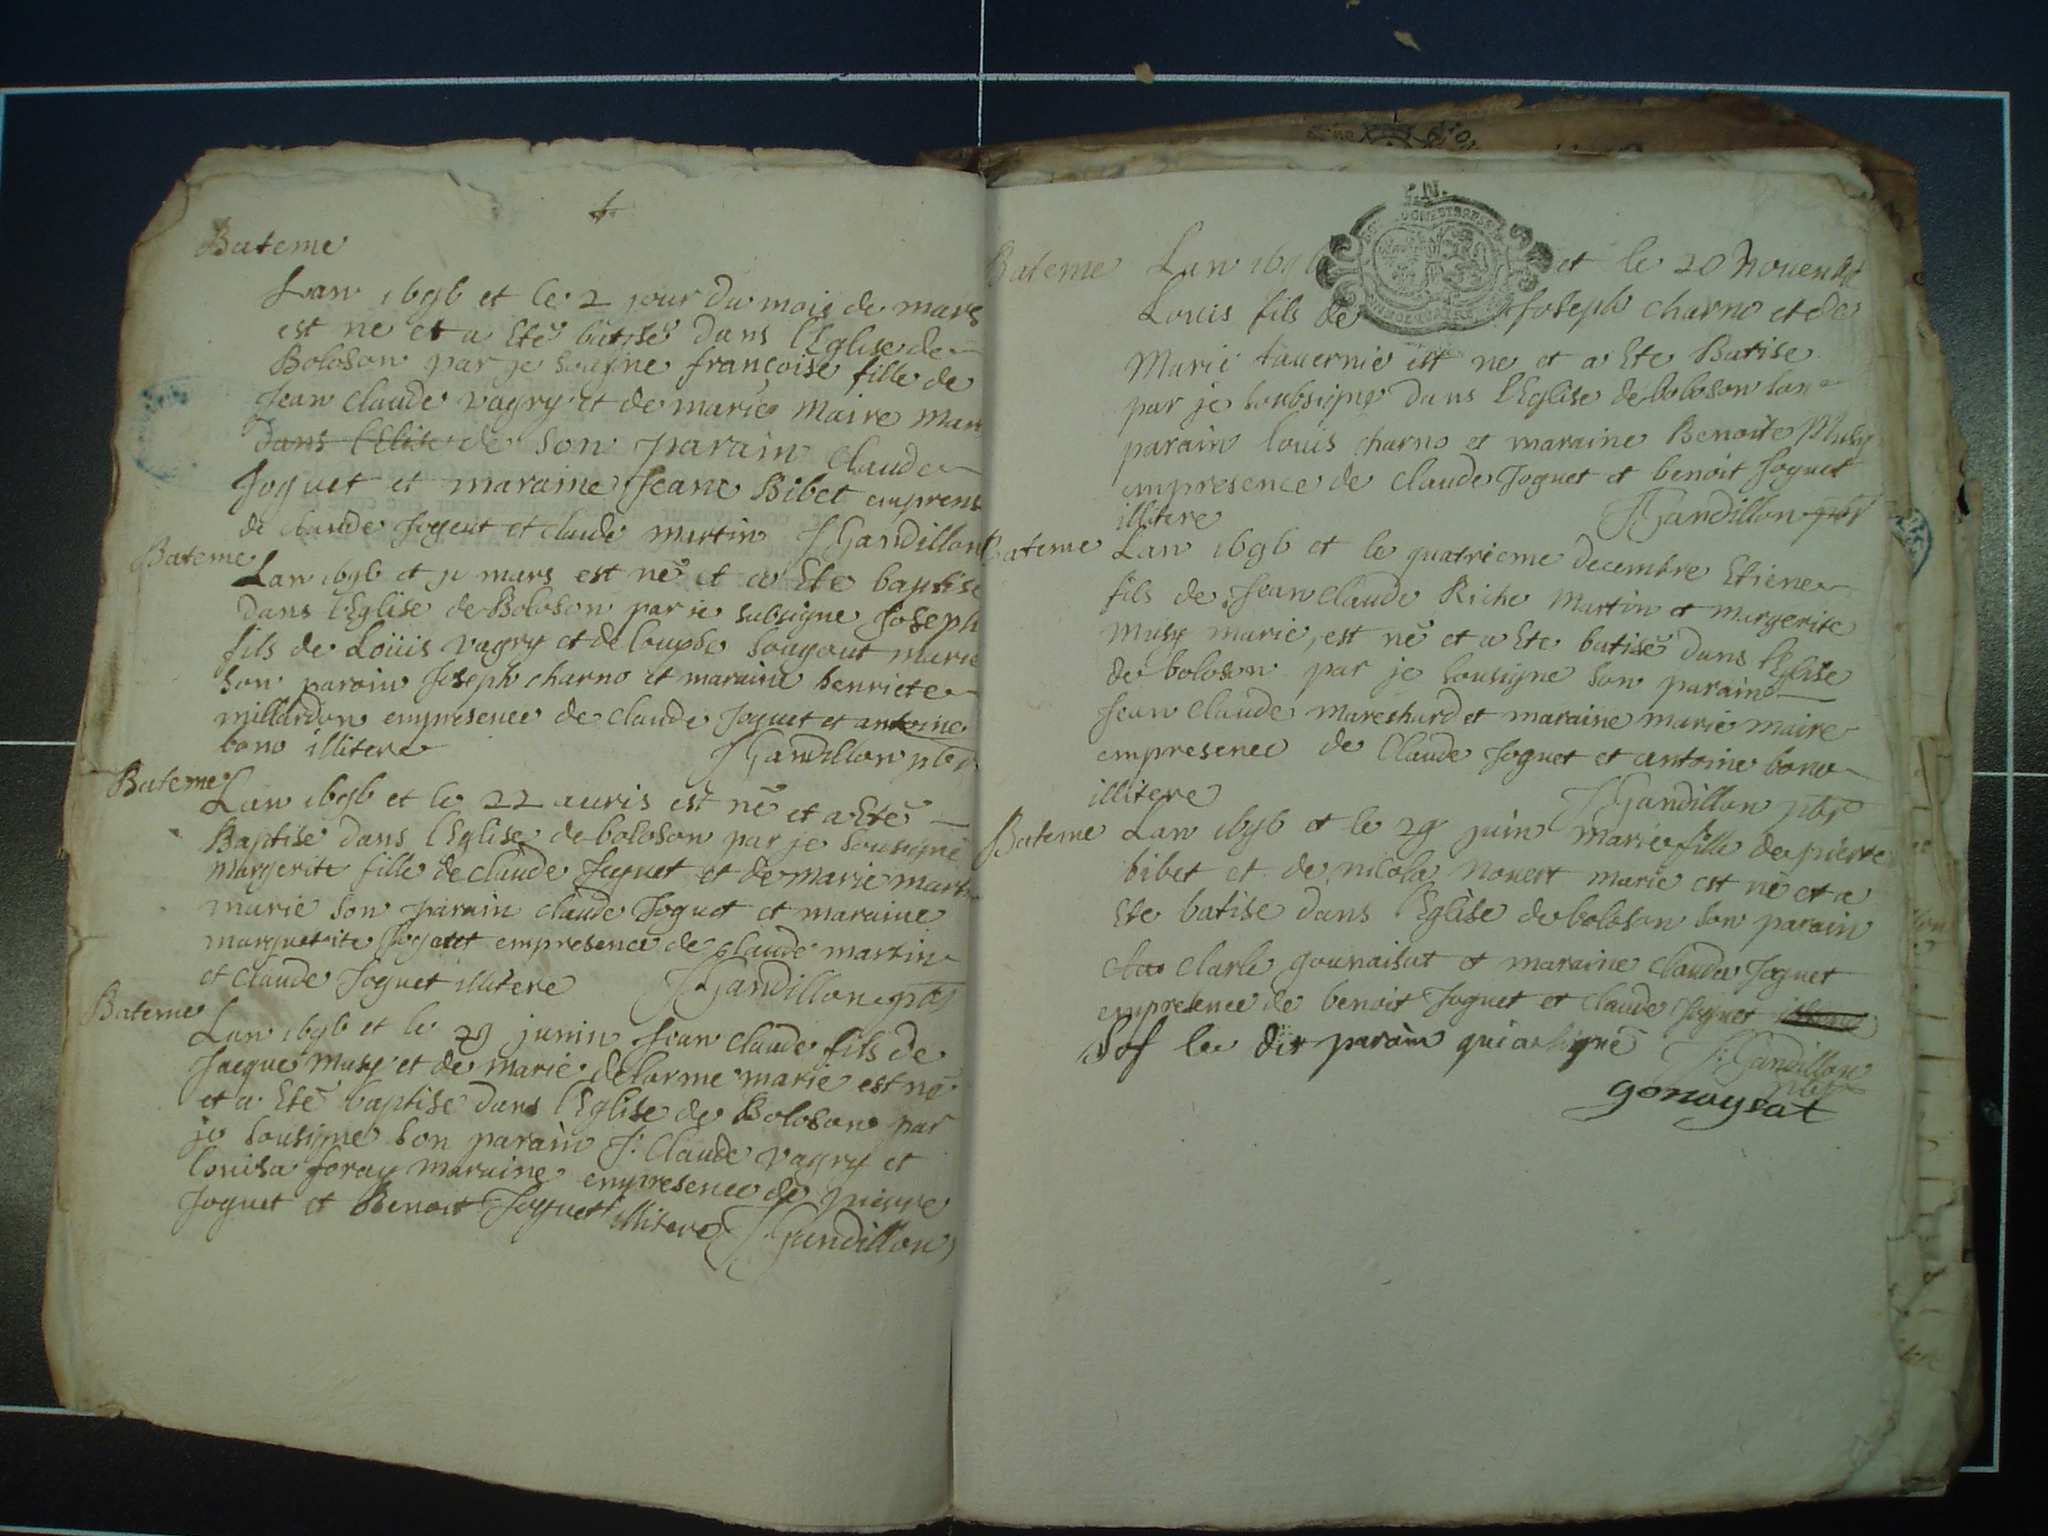 Bateme
Lan 1696 et le 2 jour du mois de mars
est ne et a Eté batisé dans l'Eglise de
Boloson par je sousigne françoise fille de
Jean Claude vagry et de marie Maire mari
dans l'Elise de son parain Claude
Joguet et maraine Jeane Bibet empresen
de claude Joguet et claude martin J Gandillon
Bateme
Lan 1696 et mars est né et a Ete baptise
dans l'Eglise de Boloson par je subsigne Joseph
fils de Loüis vagry et de marie
son parain Joseph charno et maraine henriete
millardon empresence de claude Joguet et antoine
bono illitere J Gandillon pbr
Bateme
Lan 1696 et le 22 auris est né et a Eté
Baptise dans l'Eglise de boloson par je sousigné
margerite fille de claude Joguet et de marie martin
marie son parain claude Joguet et maraine
marguerite Joguet empresence de claude martin
et claude Joguet illitere J Gandillon pbr
Bateme
Lan 1696 et le 29 junin Jean claude fils de
Jacque Musy et de marie delorme marie est né
et a Eté baptise dans l'Eglise de Boloson par
je sousigne son parain J: Claude vagry et
louisa foray maraine empresence de pierre
Joguet et Benoit Joguet illitere J Gandillon
Bateme Lan 169 et le 20 Nouembr
Louis fils de Joseph charno et de
Marie tauernie est ne et a Ete Batise
par je soubsigne dans l'Eglise de boloson son
parain louis charno et maraine Benoite Musy
empresence de claude Joguet et benoit Joguet
illitere J Gandillon pbr
Bateme Lan 1696 et le quatrieme decembre Etiene
fils de Jean Claude Riche Martin et margerite
Musy marie, est né et a Ete batisé dans l'Eglise
de boloson par je sousigne son parain
Jean claude mareshard et maraine marie maire
empresence de Claude Joguet et antoine bono
illitere J Gandillon pbr
Bateme Lan 1696 et le 29 juin marie fille de pierre
bibet et de nicola marie est né et a
Ete batise dans l'Eglise de boloson son parain
Clarle gounaisat et maraine clauda Joguet
empresence de benoit Joguet et claude Joguet
Sof le dit parain qui a signé J: Gandillon
pbr
gonaysat